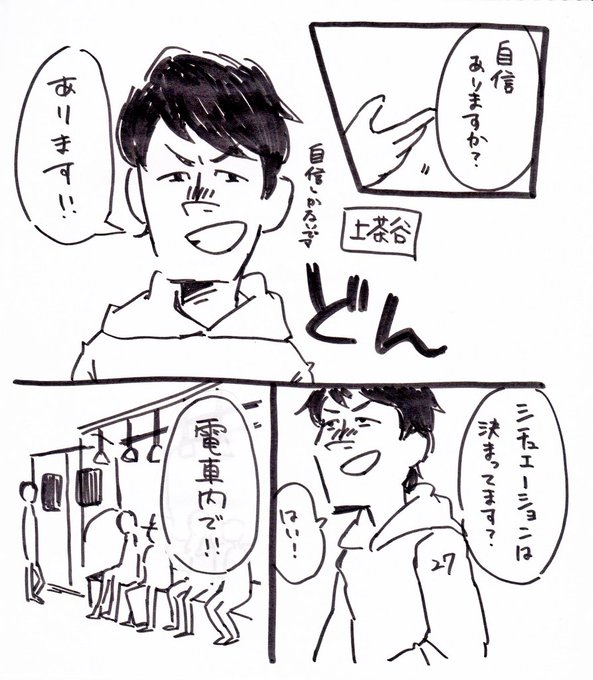 自信
ありますか?
あります!!
自信しかないです
上茶谷
どん
シチュエーションは
決まってます?
はい!
27
電車内で!!